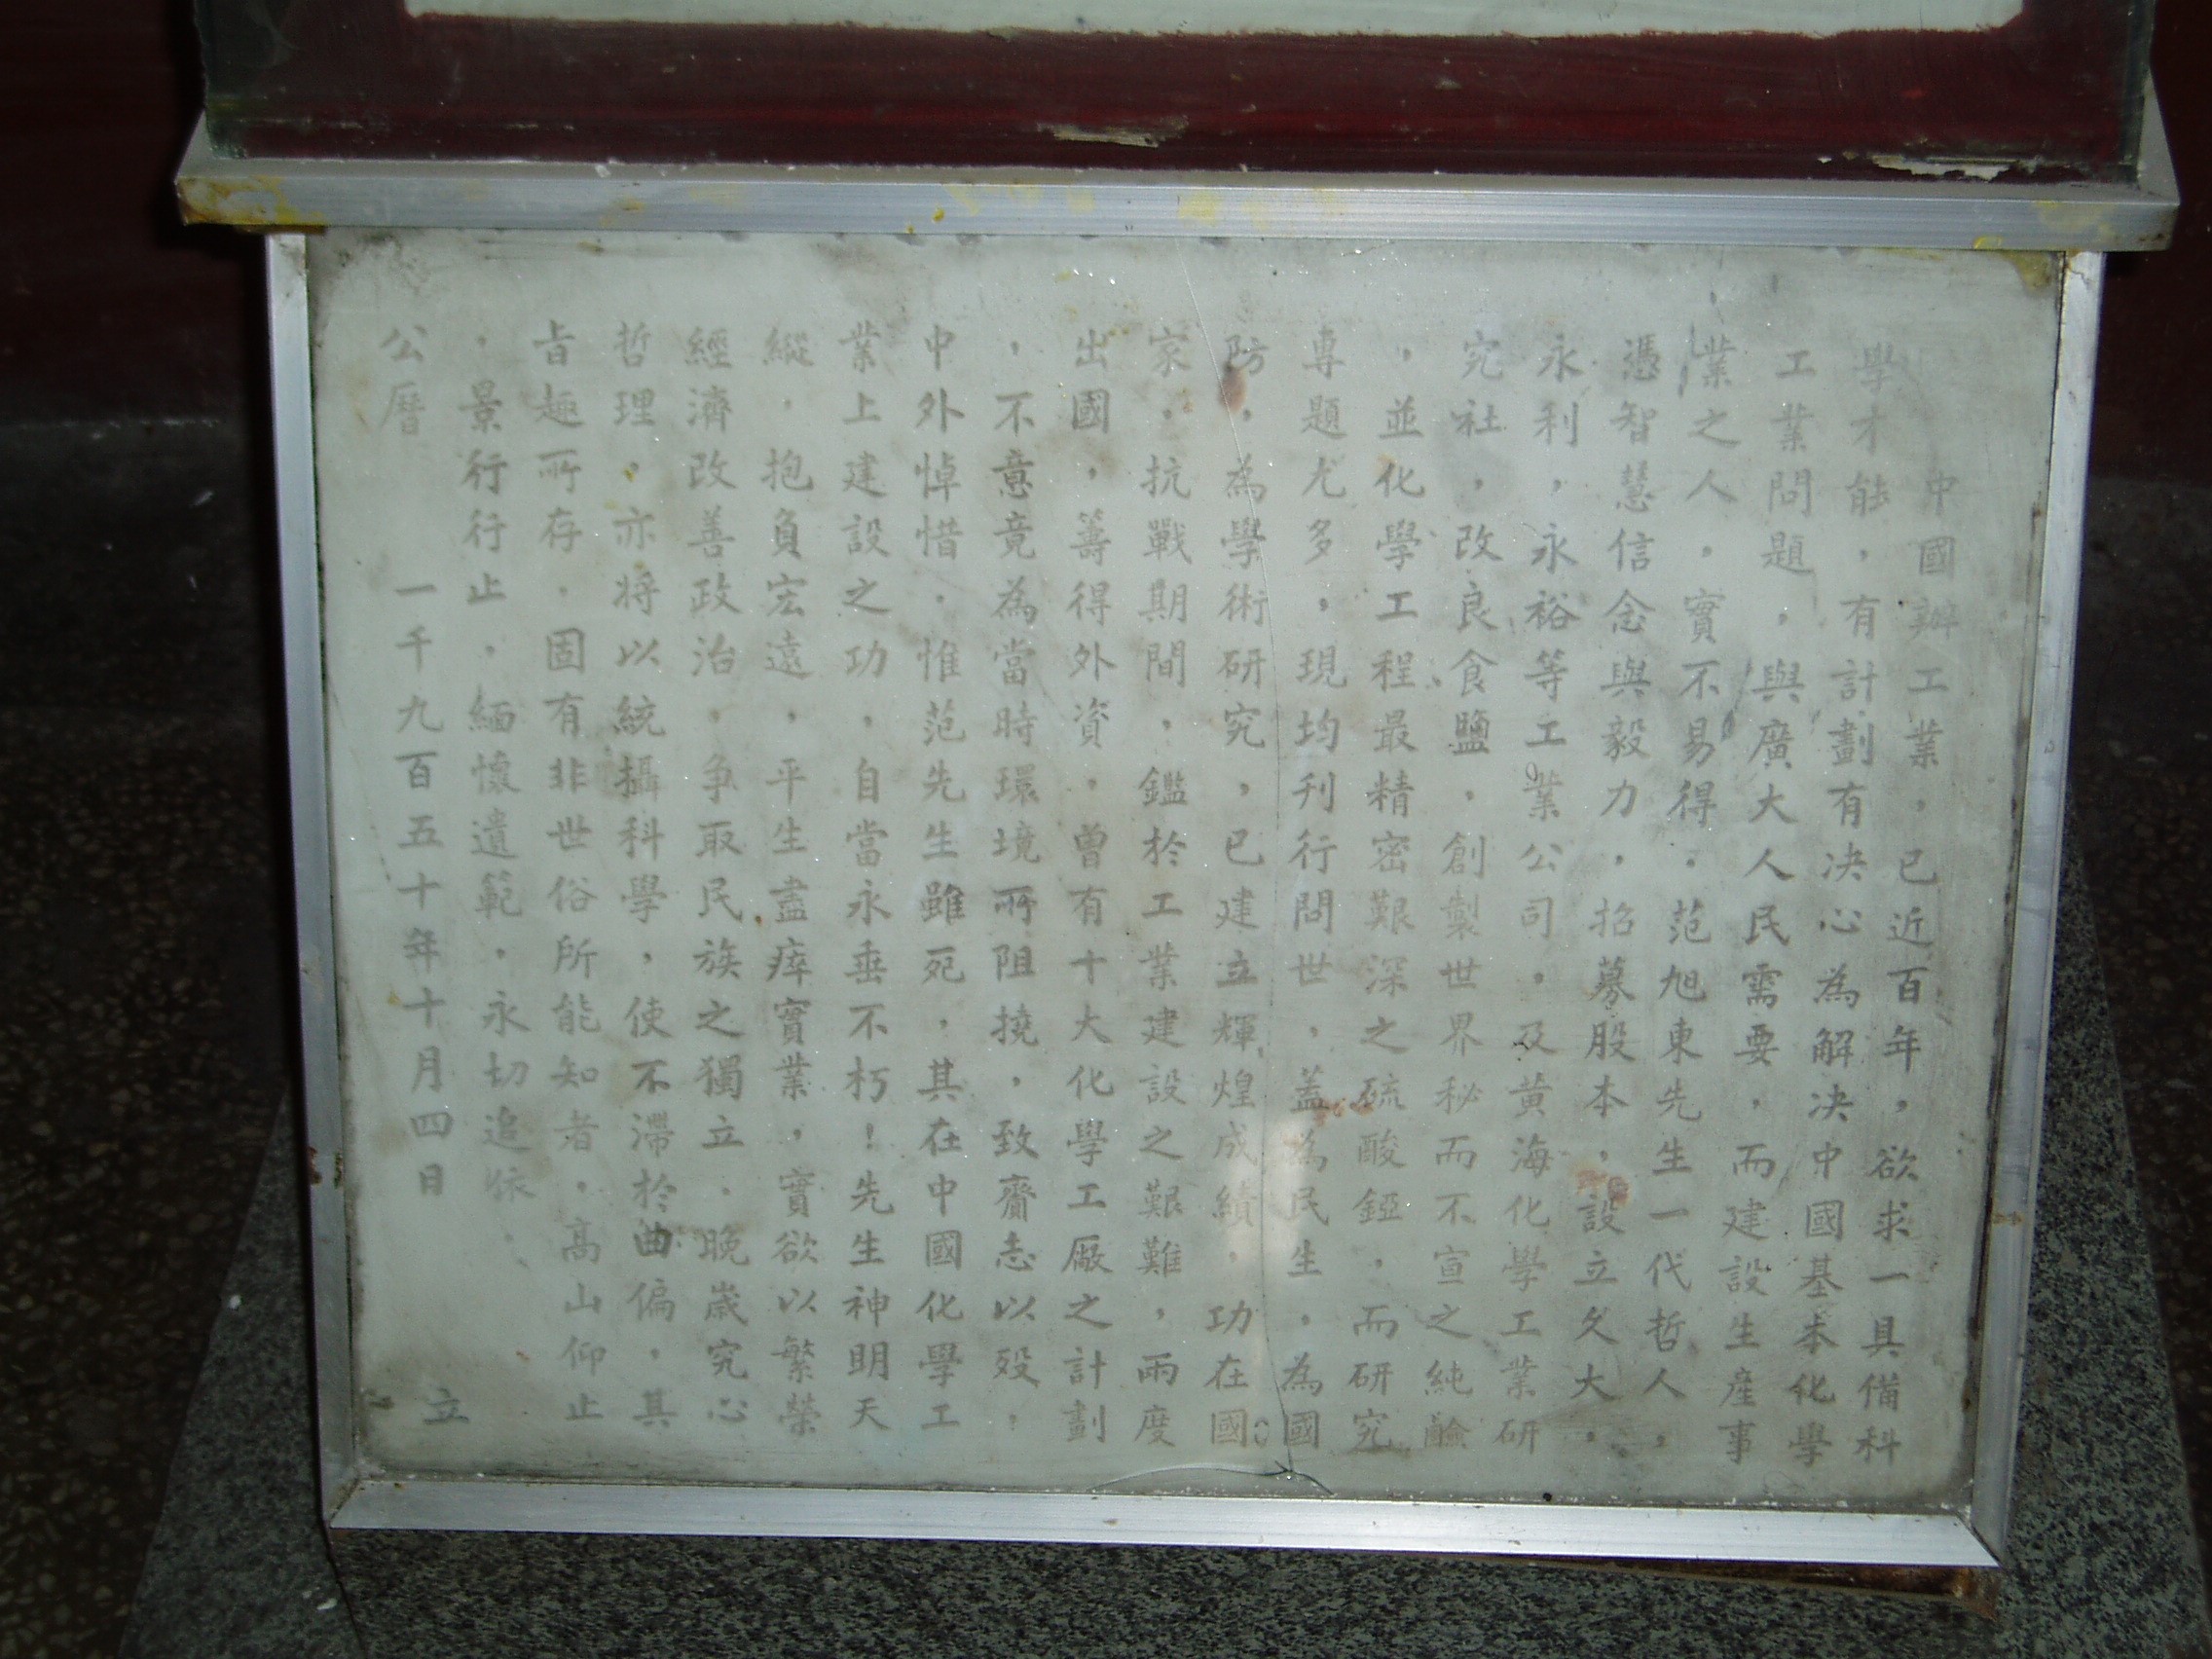 中國辦工業，已近百年，欲求一具備科
學才能，有計劃有决心為解决中國基本化學
工業問題，與廣大人民需要，而建設生產事
業之人，實不易得。范旭東先生一代哲人，
憑智慧信念與毅力，招募股本，設立久大，
永利，永裕等工業公司，及黄海化學工業研
究社，改良食鹽，創製世界秘而不宣之純鹼
，並化學工程最精密艱深之硫酸錏，而研究
專題尤多，現均刊行問世，蓋為民生，為國
防，為學術研究，已建立輝煌成績，功在國
家，抗戰期間，鑑於工業建設之艱難，兩度
出國，籌得外資，曾有十大化學工廠之計劃
，不意竟為當時環境所阻撓，致齎志以歿，
中外悼惜．惟范先生雖死，其在中國化學工
業上建設之功，自當永垂不朽！先生神明天
縱，抱負宏遠，平生盡瘁實業，實欲以繁榮
經濟改善政治，争取民族之獨立．晚歲究心
哲理，亦將以統攝科學，使不滯於曲偏，其
旨趣所存．固有非世俗所能知者，高山仰止
，景行行止，緬懷遺範，永切追依．
公曆 一千九百五十年十月四日 立